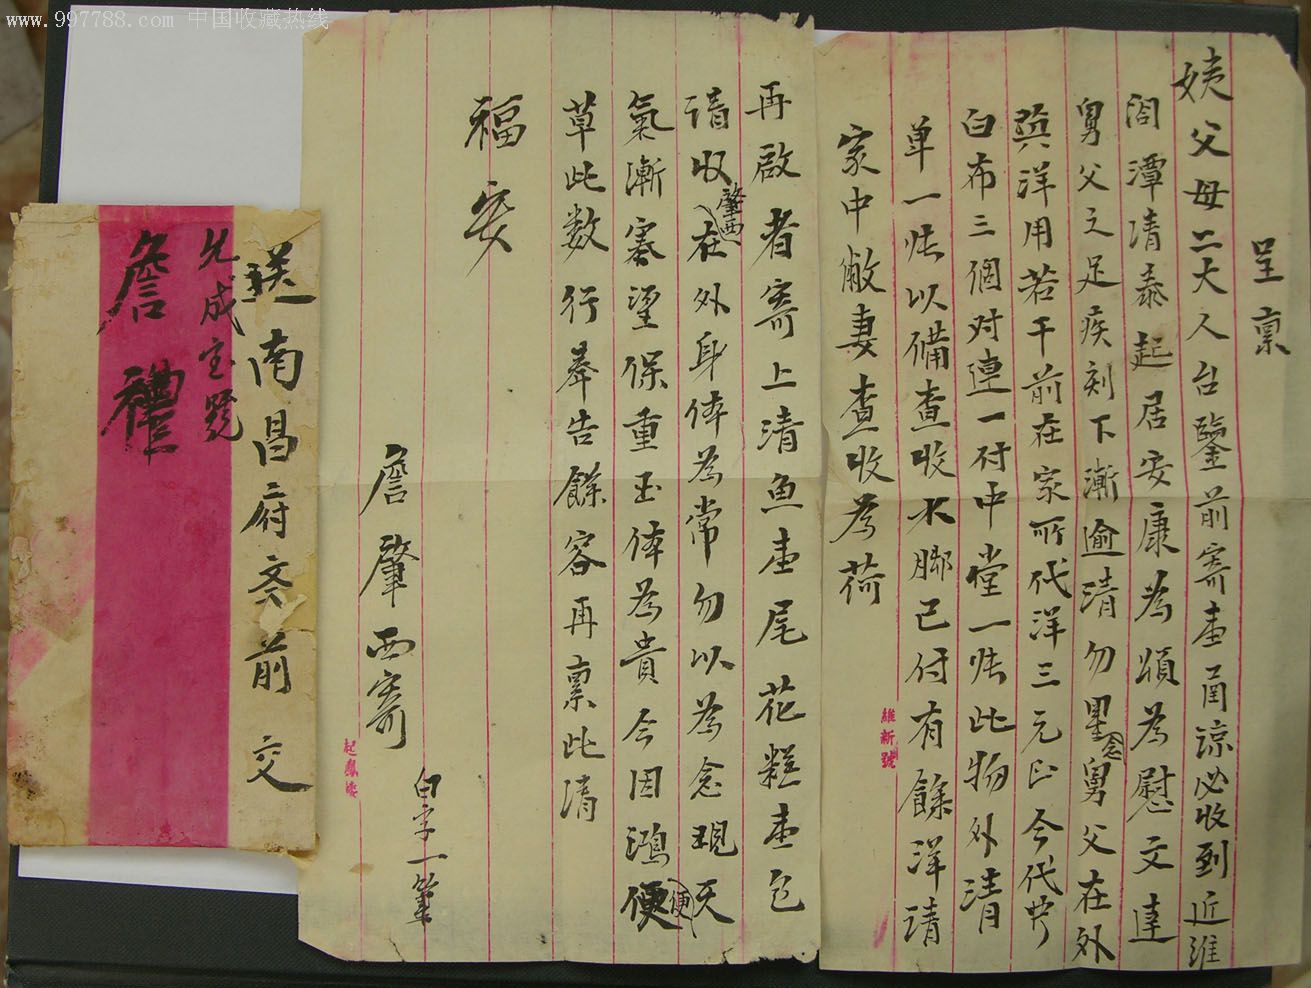 www.997788.com 中国收藏热线
呈禀
姨父母二大人台鑒前寄壹函諒必收到近維
潭清泰起居安康為頌為慰文達
舅父之足疾刻下漸逾清勿罣念舅父在外
與洋用若干前在家所代洋三元正今代
白布三個对連一付中堂一怅此物外清
单一怅以備查收水脚已付有餘洋请
家中敝妻查收為荷
維新號
再啟者寄上清魚壹尾花粧壹包
请收肇西在外身体為常勿以為念現天
氣漸寒望保重玉体為貴今因鴻便便
草此数行奉告餘容再禀此清
福安
白字一筆
詹肇西寄
起鳳樓
送南昌府前交
允成宝號
詹禮